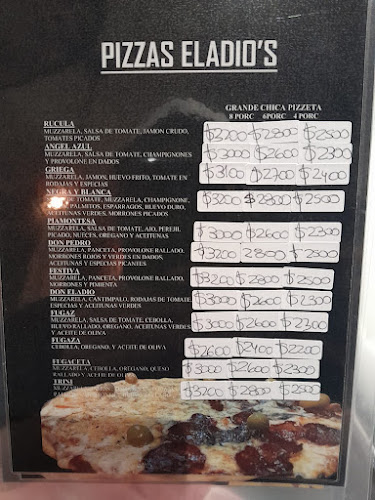 PIZZAS ELADIO'S
GRANDE CHICA PIZZETA
8 PORC 6PORC 4 PORC
RUCULA
MUZZARELA, SALSA DE TOMATE, JAMON CRUDO,
TOMATES PICADOS
$2700 $2300 $2500
ANGEL AZUL
MUZZARELA, SALSA DE TOMATE, CHAMPIGNONES
Y PROVOLONE EN DADOS
$3000 $2600 $2300
GRIEGA
MUZZARELA, JAMON, HUEVO FRITO, TOMATE EN
RODAJAS Y ESPECIAS
$3100 $2700 $2400
NEGRA Y BLANCA
DE TOMATE, MUZZARELA, CHAMPIGNONES
PALMITOS, ESPARRAGOS, HUEVO DURO,
ACEITUNAS VERDES, MORRONES PICADOS
$3200 $2800 $2500
PIAMONTESA
MUZZARELA, SALSA DE TOMATE, AJO, PEREJIL
PICADO, NUECES, OREGANO Y ACEITUNAS
$3000 $2600 $2300
DON PEDRO
MUZZARELA, PANCETA, PROVOLONE RALLADO,
MORRONES ROJOS Y VERDES EN DADOS,
ACEITUNAS Y ESPECIAS PICANTES
$3200 $2800 $2500
FESTIVA
MUZZARELA, PANCETA, PROVOLONE RALLADO,
MORRONES Y PIMENTA
$3200 $2800 $2500
DON ELADIO
MUZZARELA, CANTIMPALO, RODAJAS DE TOMATE,
ESPECIAS Y ACEITUNAS VERDES
$3000 $2600 $2300
FUGAZ
MUZZARELA, SALSA DE TOMATE, CEBOLLA,
HUEVO RALLADO, OREGANO, ACEITUNAS VERDES
Y ACEITE DE OLIVA
$3000 $2600 $2300
FUGAZA
CEBOLLA, OREGANO, Y ACEITE DE OLIVA
$2600 $2400 $2200
FUGACETA
MUZARELA, CEBOLLA, OREGANO, QUESO
RALLADO Y ACEITE DE OLIVA
$3000 $2600 $2300
TRINI
MUZZARELA
$3200 $2800 $2500